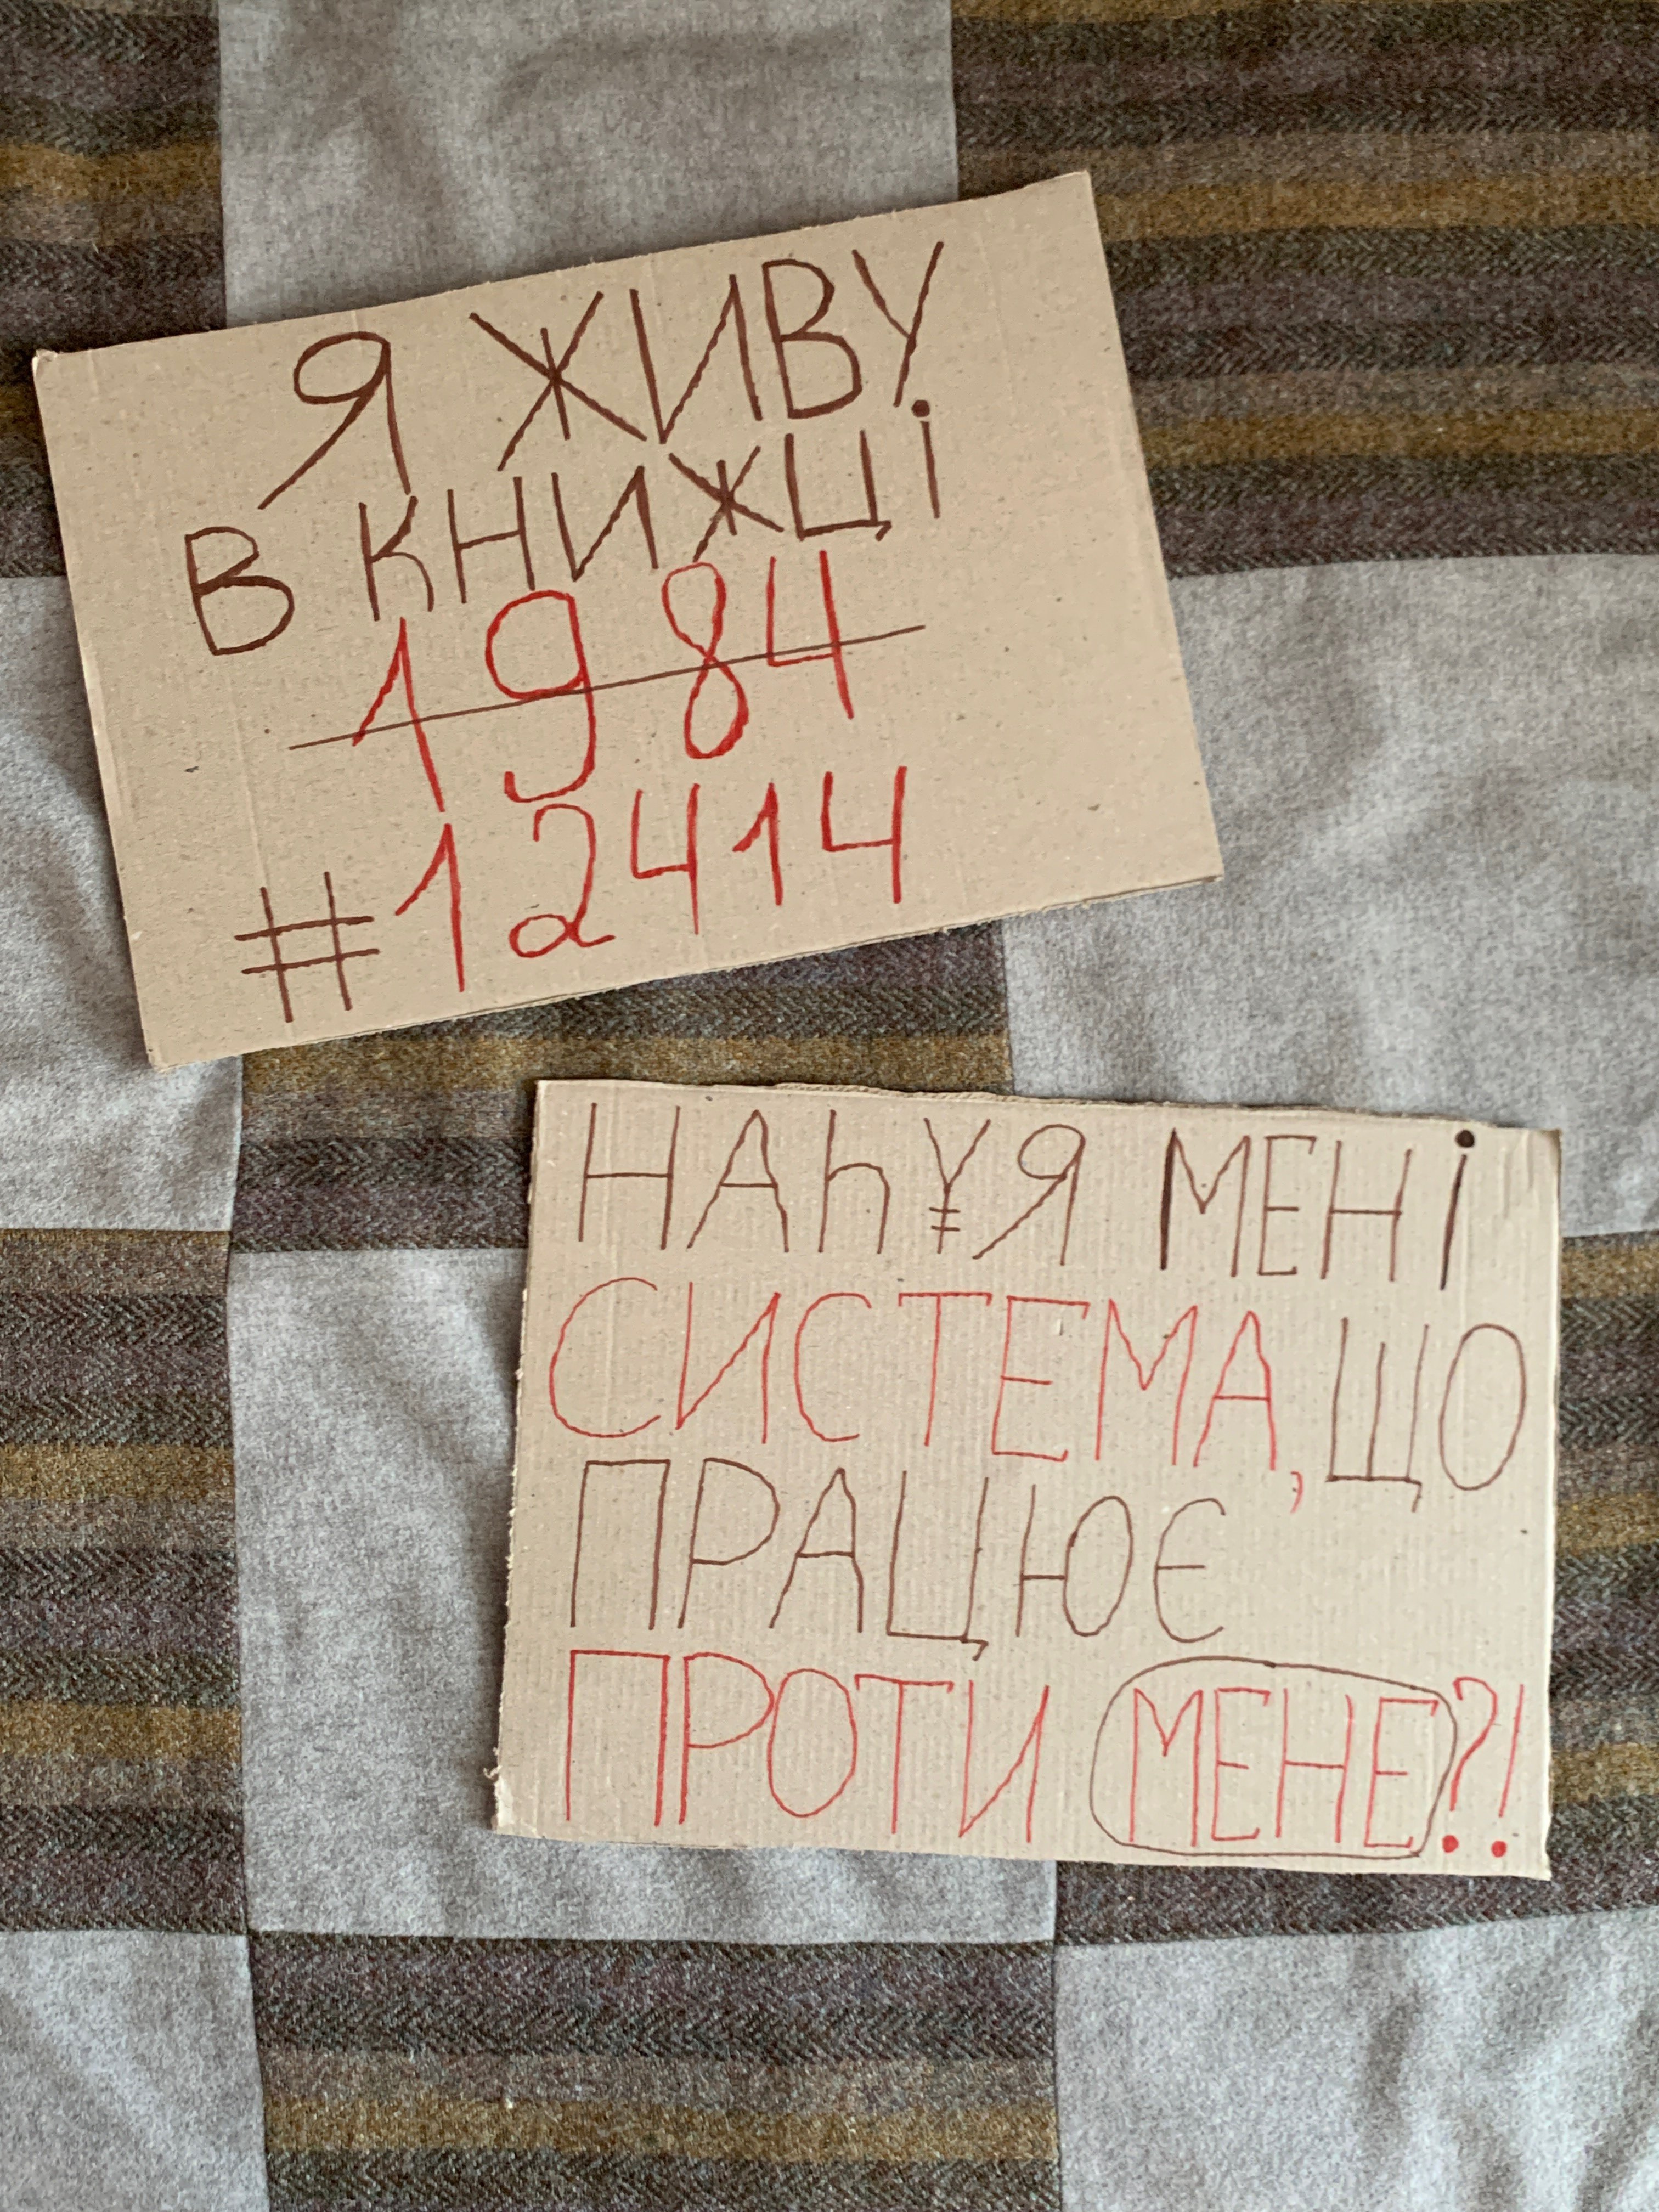 Я ЖИВУ
В КНИЖЦІ
1984
#12414
НАҺҰЯ МЕНІ
СИСТЕМА, ЩО
ПРАЦЮЄ
ПРОТИ МЕНЕ?!